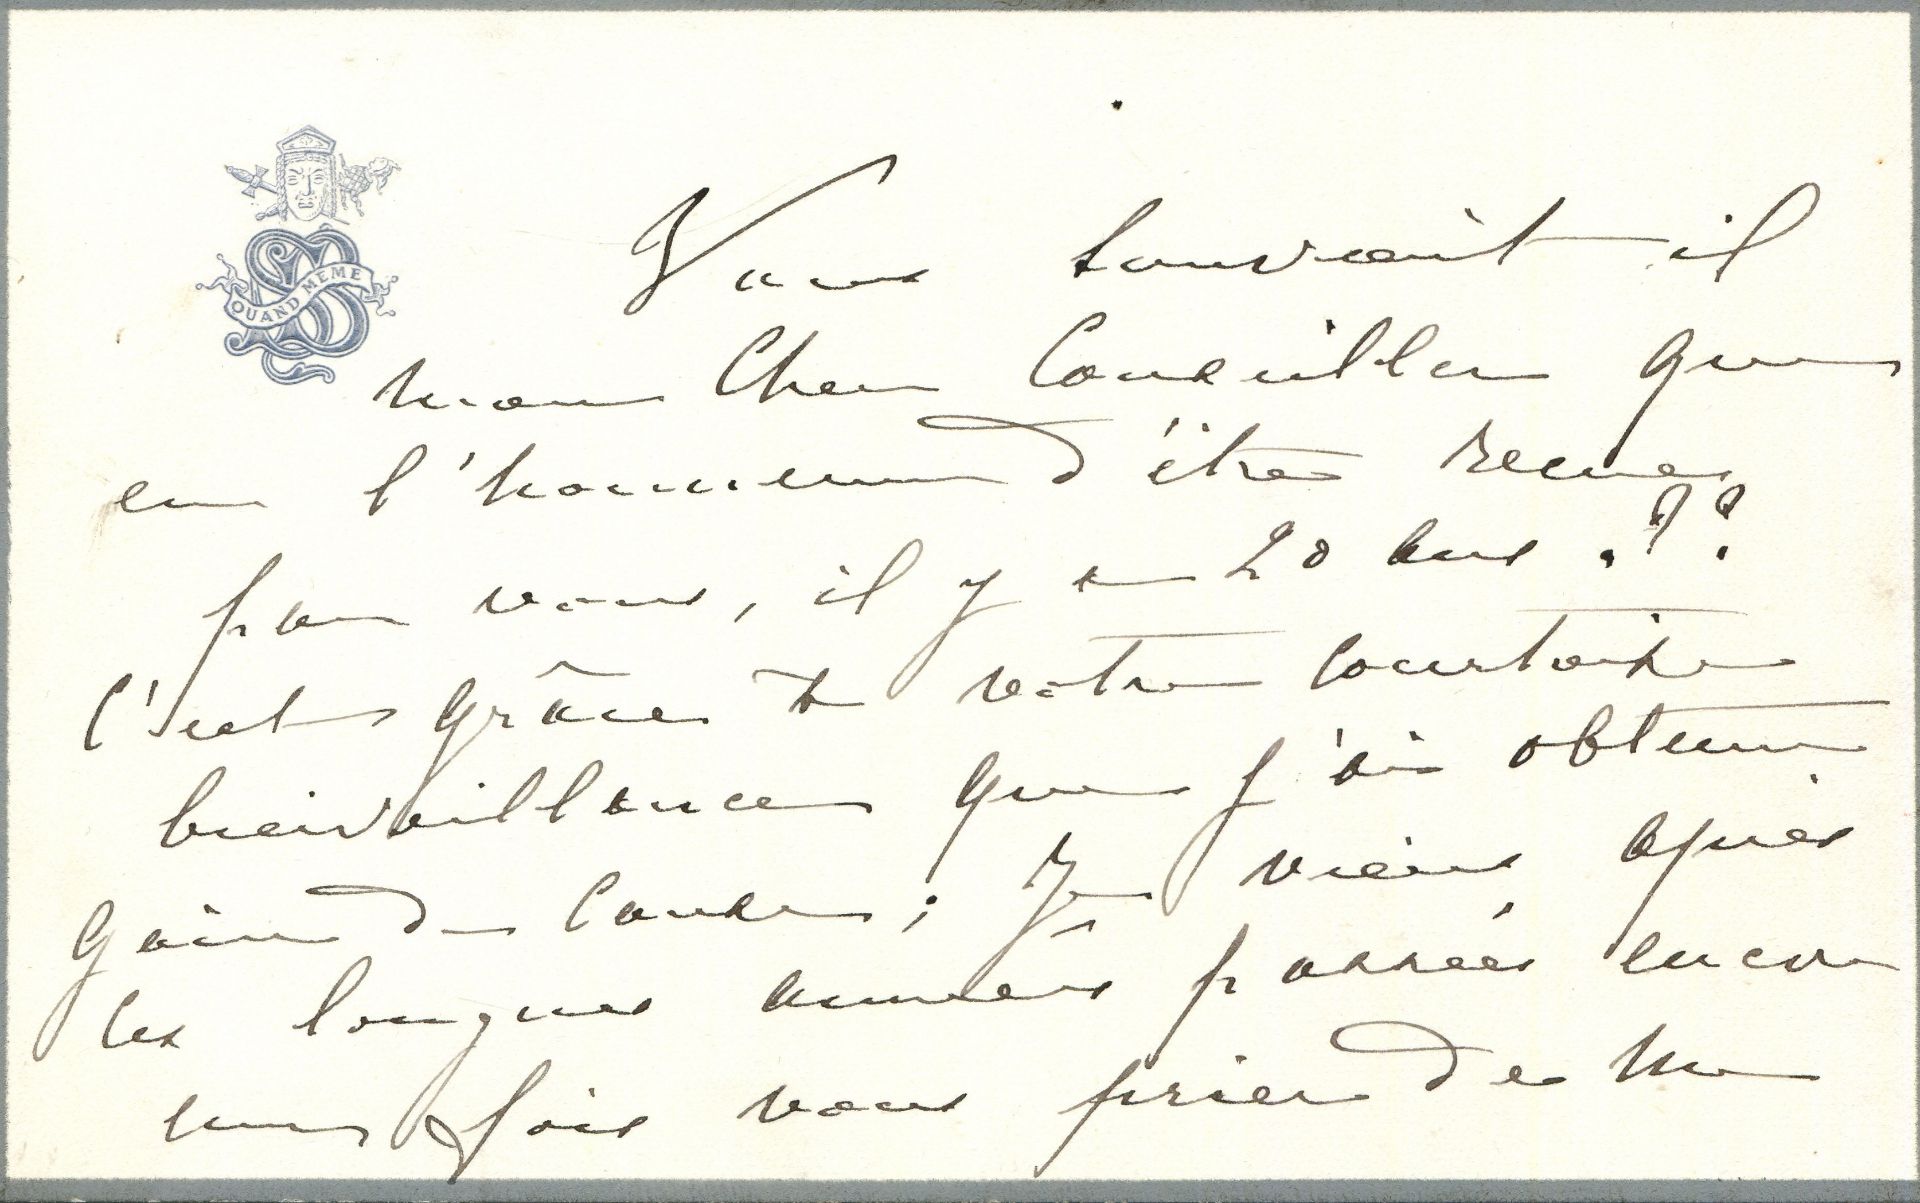 QUAND MEME
Vous souvient il
mon Cher Conseiller que
eu l'honneur d'être reçue
par vous, il y a 20 ans . ? ?
C'est grâce à votre courtoise
bienveillance que j'ai obtenu
gain de cause ; Je viens, après
les longues années passées encore
une fois vous prier de me